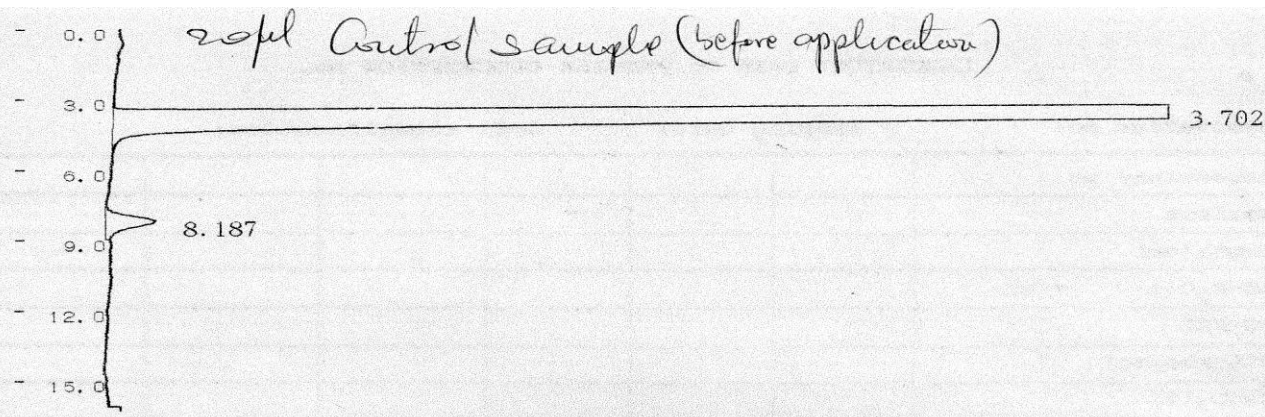 0.0 20μl Control sample (before application)
3.0
3.702
6.0
8.187
9.0
12.0
15.0